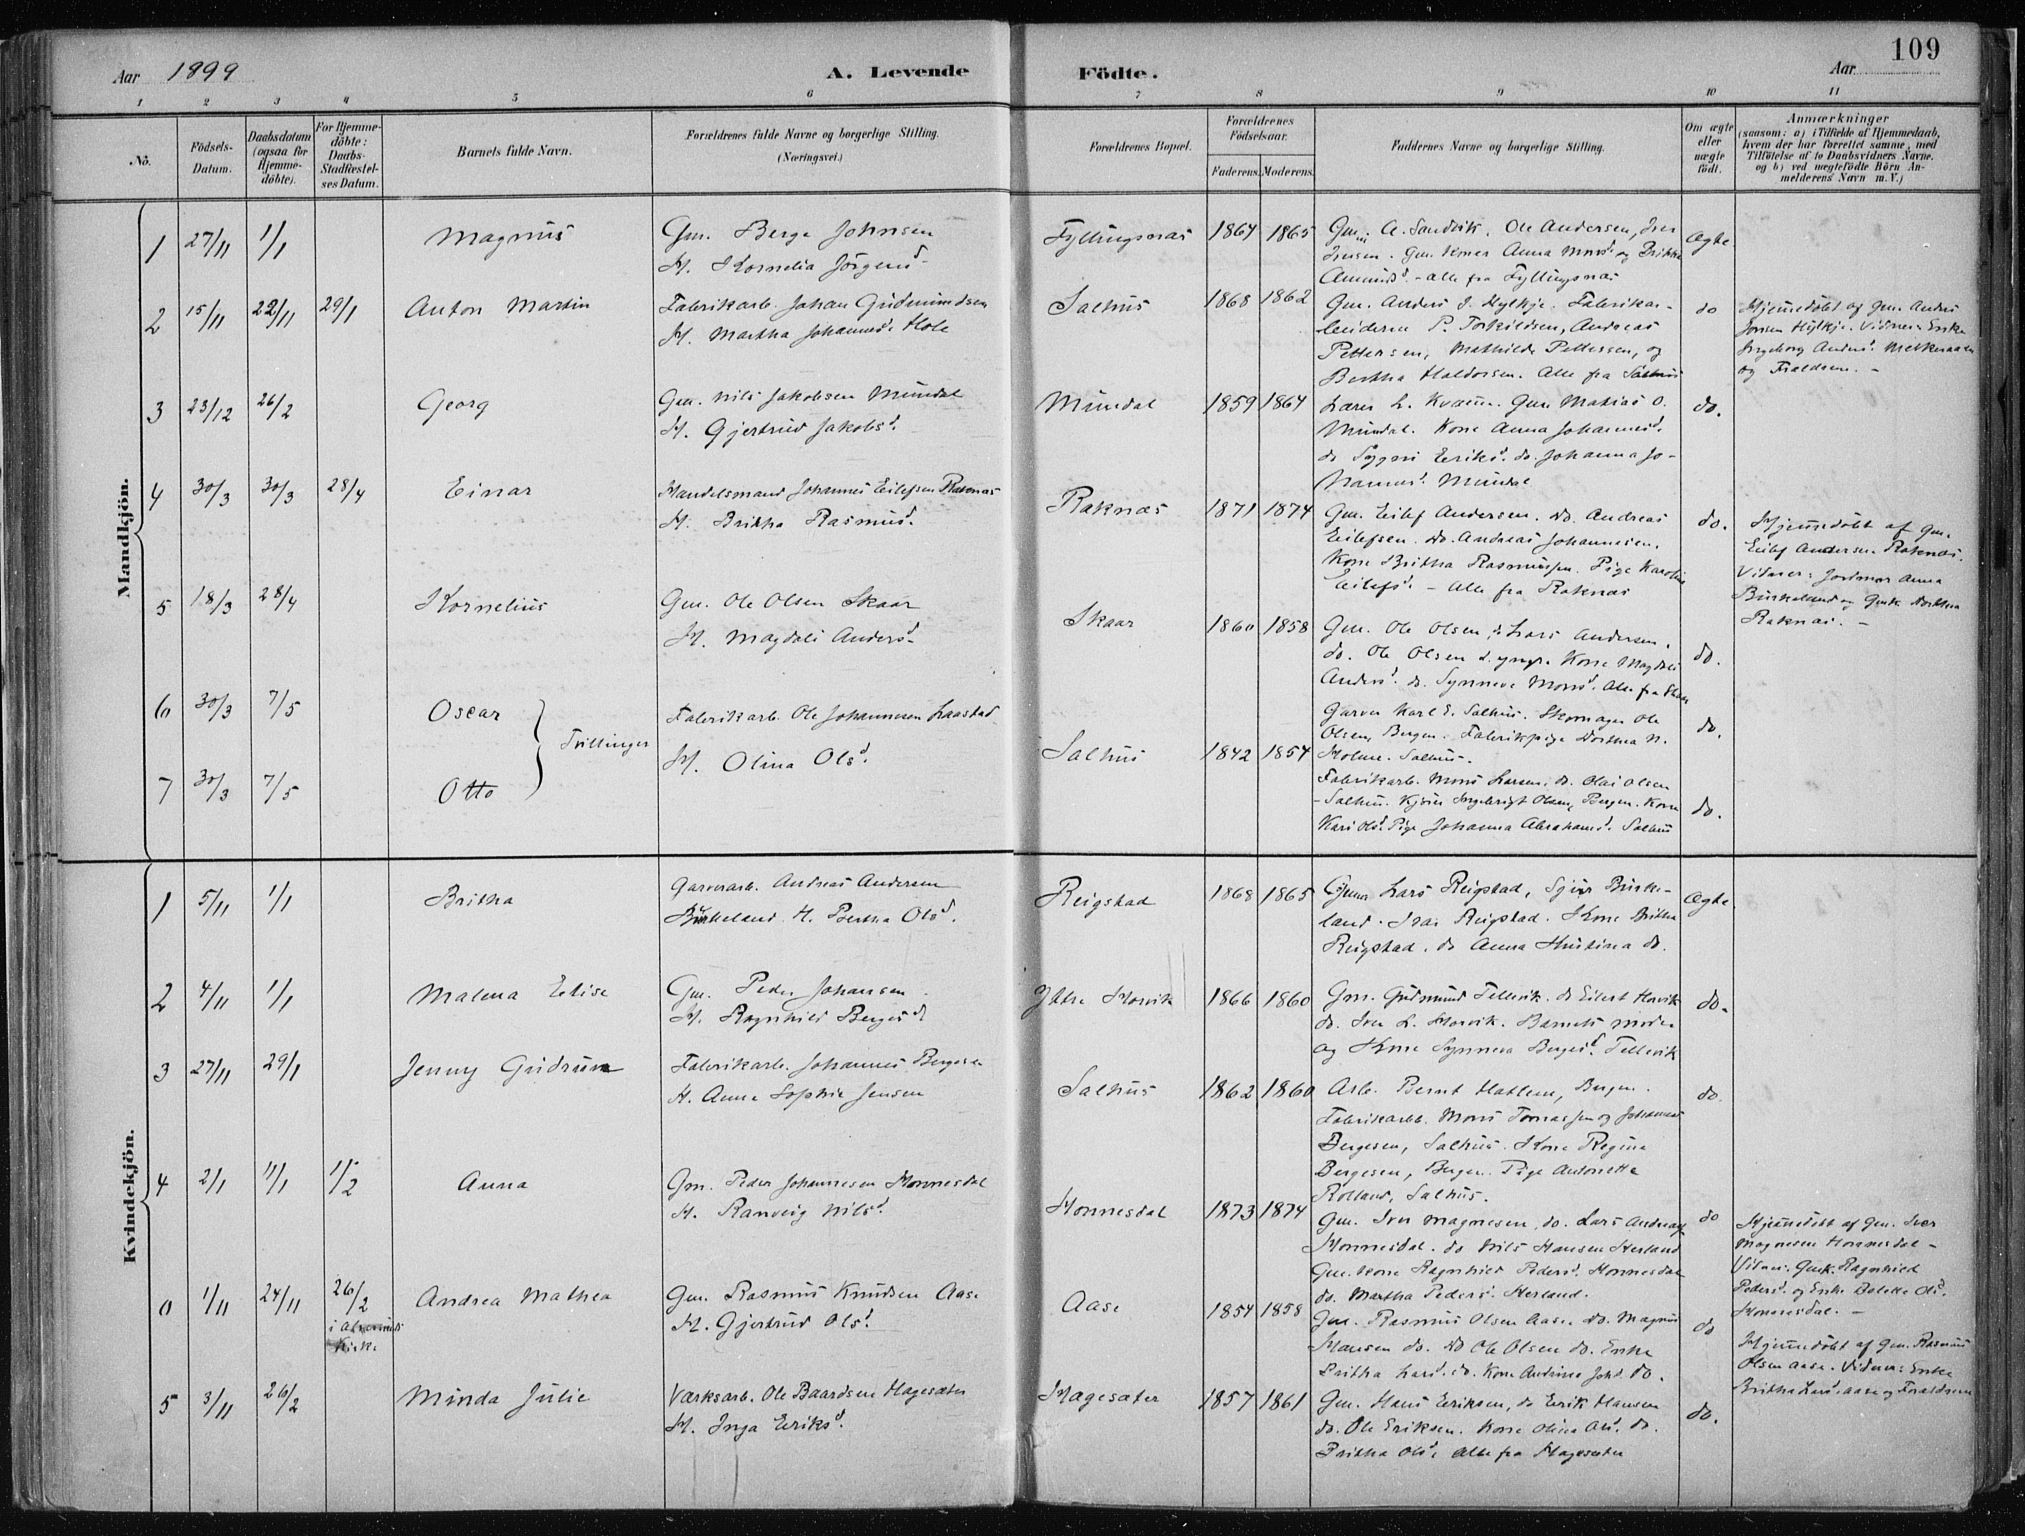 109
Aar 1899
A. Levende
Födte.
Aar
1 2 3 4 5 6 7 8 9 10 11
Nô.
Födsels-
Datum.
Daabsdatum
(ogsaa for
Hjemme-
döbte).
For Hjemme-
döbte:
Daabs-
Stadfæstel-
ses Datum.
Barnets fulde Navn.
Forældrenes fulde Navne og borgerlige Stilling.
(Næringsvei.)
Forældrenes Bopæl.
Forældrenes
Födselsaar.
Faderens. Moderens.
Faddernes Navne og borgerlige Stilling.
Om ægte
eller
uægte
födt.
Anmærkninger
(saasom: a) i Tilfælde af Hjemmedaab,
hvem der har forrettet samme, med
Tilföielse af to Daabsvidners Navne.
og b) ved uægtefödte Börn An-
melderens Navn m. V.)
Mandkjön.
1 27/11 1/1 Magnus
Gm. Berge Johnsen
H. Kornelia Jörgensd.
Fyllingsnæs 1864 1865
Gm. A. Sandvik, Ole Andersen, Iver
Iversen. Gm. koner Anna Monsd. og Brithe
Amundsd. - alle fra Fyllingsnæs
Ægte
2 15/11 22/11 29/1 Anton Martin
Fabrikarb. Johan Gudmundsen
H. Martha Johannesd. Hole
Salhus 1868 1862
Gm. Anders J. Hylkje. Fabrikar-
beiderne P. Torkildsen, Andreas
Pettersen, Mathilde Pettersen, og
Bertha Haldorsen. Alle fra Salhus
do
Hjemmedöbt af Gm. Anders
Jonsen Hylkje. Vidner: Enke
Ingeborg Andersd. Melkeraaen
og Forældrene. -
3 23/12 26/2 Georg
Gm. Nils Jakobsen Mundal
H. Gjertrud Jakobsd.
Mundal 1859 1864
Lærer L. Kvamm. Gm. Matias O.
Mundal. Kone Anna Johannesd.
do Sygni Eriksd. do. Johanna Jo-
hannesd. Mundal
do.
4 30/3 30/3 28/4 Einar
Handelsmand Johannes Eilefsen Raknæs
H. Britha Rasmusd.
Raknæs 1871 1874
Gm. Eilef Andersen. do. Andreas
Eilefsen. do. Andreas Johannesen.
Kone Britha Rasmussen. Pige Karoline
Eilefsd. - Alle fra Raknæs
do.
Hjemmedöbt af Gm.
Eilef Andersen Raknæs.
Vidner: Jordmor Anna
Birkeland og Gmk. Dorthea
Raknæs. -
5 18/3 28/4 Kornelius
Gm. Ole Olsen Skaar
H. Magdeli Andersd.
Skaar 1860 1858
Gm. Ole Olsen, do Lars Andersen.
do. Ole Olsen d. yngr. Kone Magdeli
Andersd. do. Synneve Monsd. Alle fra Skaar
do.
6 30/3 7/5 Oscar
7 30/3 7/5 Otto
Tvillinger
Fabrikarb. Ole Johannesen Laastad
H. Olina Olsd.
Salhus 1842 1854
Garver Karl E. Salhus. Skomager Ole
Olsen, Bergen. Fabrikpige Dorthea N.
Holme. Salhus.
do.
Fabrikarb. Mons Larsen, do. Olai Olsen
Salhus. Kjörer Ingebrigt Olsen, Bergen. Kone
Kari Olsd. Pige Johanna Abrahamsd. Salhus
do.
Kvindekjön.
1 5/11 1/1 Britha
Garverarb. Andreas Andersen
Birkeland. H. Bertha Olsd.
Reigstad 1868 1865
Gmr. Lars Reigstad, Sjur Birke-
land. Ivar Reigstad. Kone Britha
Reigstad. do Anna Kristina do.
Ægte
2 4/11 1/1 Malena Elise
Gm. Peder Johansen
H. Ragnhild Bergesd.
Ytre Horvik 1866 1860
Gm. Gudmund Tellevik. do Eilert Horvik
do. Iver L. Horvik. Barnets moder
og Kone Synneva Bergesd. Tellevik
do.
3 27/11 29/1 Jenny Gudrun
Fabrikarb. Johannes Bergesen
H. Anna Sophie Jensen
Salhus 1862 1860
Arb. Bernt Hatlem, Bergen.
Fabrikarbb. Mons Tomassen og Johannes
Bergesen, Salhus. Kone Regina
Bergesen, Bergen. Pige Antonette
Rolland, Salhus.
do.
4 2/1 11/1 1/2 Anna
Gm. Peder Johannesen Honnesdal
H. Ranveig Nilsd.
Honnesdal 1873 1874
Gm. Iver Magnesen, do. Lars Andreas
Honnesdal. do Nils Hansen Herland
Gm. kone Ragnhild Pedersd. Honnesdal
do. Martha Pedersd. Herland.
do
Hjemmedöbt af Gm. Iver
Magnesen Honnesdal -
Vidner: Gmk. Ragnhild
Pedersd. og Enke Bolette Olsd.
Honnesdal. -
0 1/11 24/11 26/2
i
Kirke
Andrea Mathea
Gm. Rasmus Knudsen Aase
H. Gjertrud Olsd.
Aase 1854 1858
Gm. Rasmus Olsen Aase. do. Magnus
Hansen do. do Ole Olsen do. Enke
Britha Larsd. do. Kone Andrina Johd. do.
do
Hjemmedöbt af Gm. Rasmus
Olsen Aase. Vidner: Enke
Britha Larsd. Aase og Forældrene
5 3/11 26/2 Minda Julie
Værksarb. Ole Baardsen Hagesæter
H. Inga Eriksd.
Hagesæter 1857 1861
Gm. Hans Eriksen, do Erik Hansen
do. Ole Eriksen. Kone Olina Olsd. do.
Britha Olsd. alle fra Hagesæter
do.